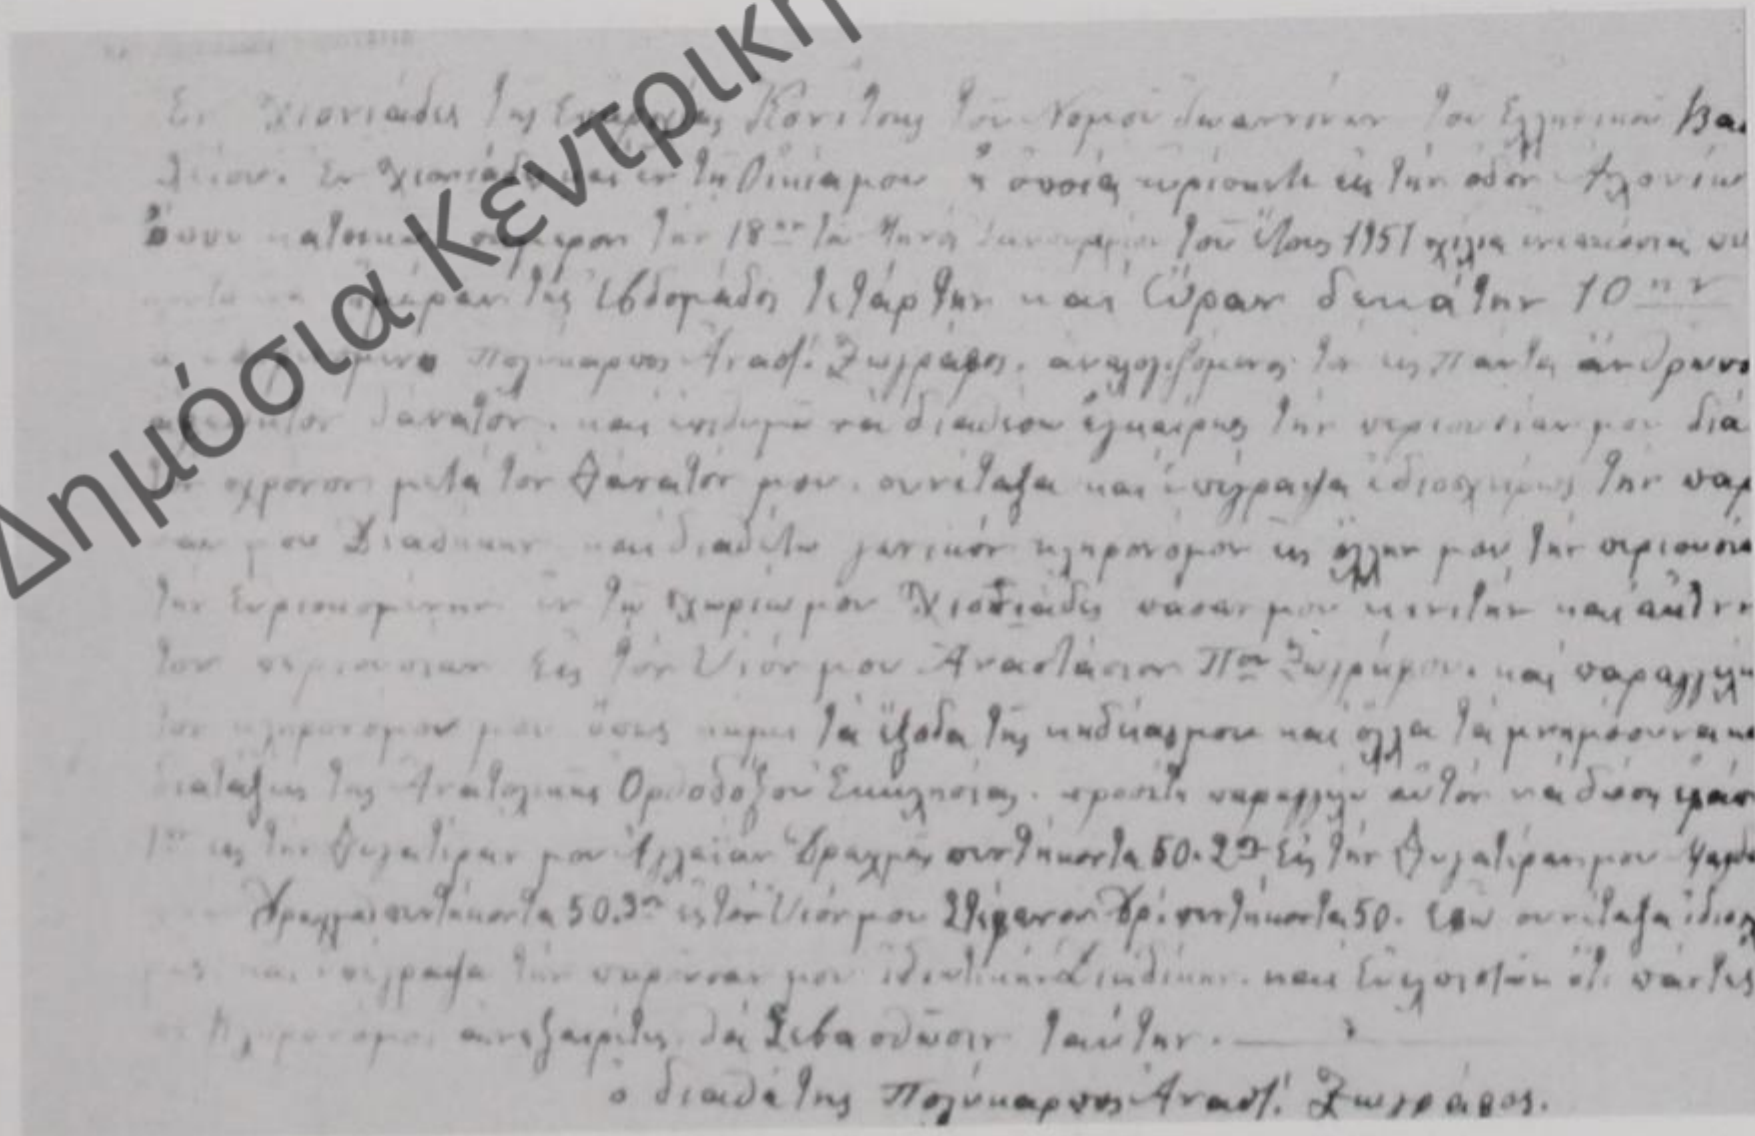 Δημόσια Κεντρική
Εν Χιονιάδες της Επαρχίας Κονίτσης του Νομού Ιωαννίνων του Ελληνικού Βα
Εν Χιονιάδες και εν τη Οικία μου η οποία ευρίσκετε εις την οδόν
όπου κατοικώ σήμερον την 18ην του μηνός Ιανουαρίου του έτους 1951 χίλια εννεακόσια πε
ημέραν της εβδομάδος τετάρτην και ώραν δεκάτην 10ην
Πολύκαρπος Αναστ. Ζωγράφος. αναλολιζόμενος τον εις Πάντα άνθρωπο
θάνατον. και επιθυμώ να διαθέσω εγκαίρως την περιουσίαν μου διά
χρόνον μετά τον θάνατόν μου. συνέταξα και έγραψα ιδιοχείρως την παρ
μου Διαθήκην και διαθέτω γενικόν κληρονόμον εις όλλην μου την περιουσία
την Ευρισκομένην εν τω χωρίω μου Χιονιάδες πάσαν μου κινητήν και ακίνη
τον περιουσίαν Εις τον Υιόν μου Αναστάσιον Πολ Ζωγράφον. και παραγγέλω
τον κληρονόμον μου όπως κάμει τα έξοδα της κηδείας μου και όλλα τα μνημόσυνα κα
διατάξεις της Ανατολικής Ορθοδόξου Εκκλησίας. προσέτι παραγγέλω αυτόν να δώση
1ον εις την θυγατέραν μου Δραχμάς πεντήκοντα 50. 2ον Εις την θυγατέραν μου
Δραχμάς πεντήκοντα 50. 3ον εις τον Υιόν μου Στέφανον Δρ. πεντήκοντα 50. συνέταξα ιδιοχ
και έγραψα την παρούσαν μου Διαθήκην. και Ευελπιστών ότι πάντες
οι Κληρονόμοι ανεξαιρέτως θα Σεβασθώσιν ταύτην.
ο διαθέτης Πολύκαρπος Αναστ. Ζωγράφος.